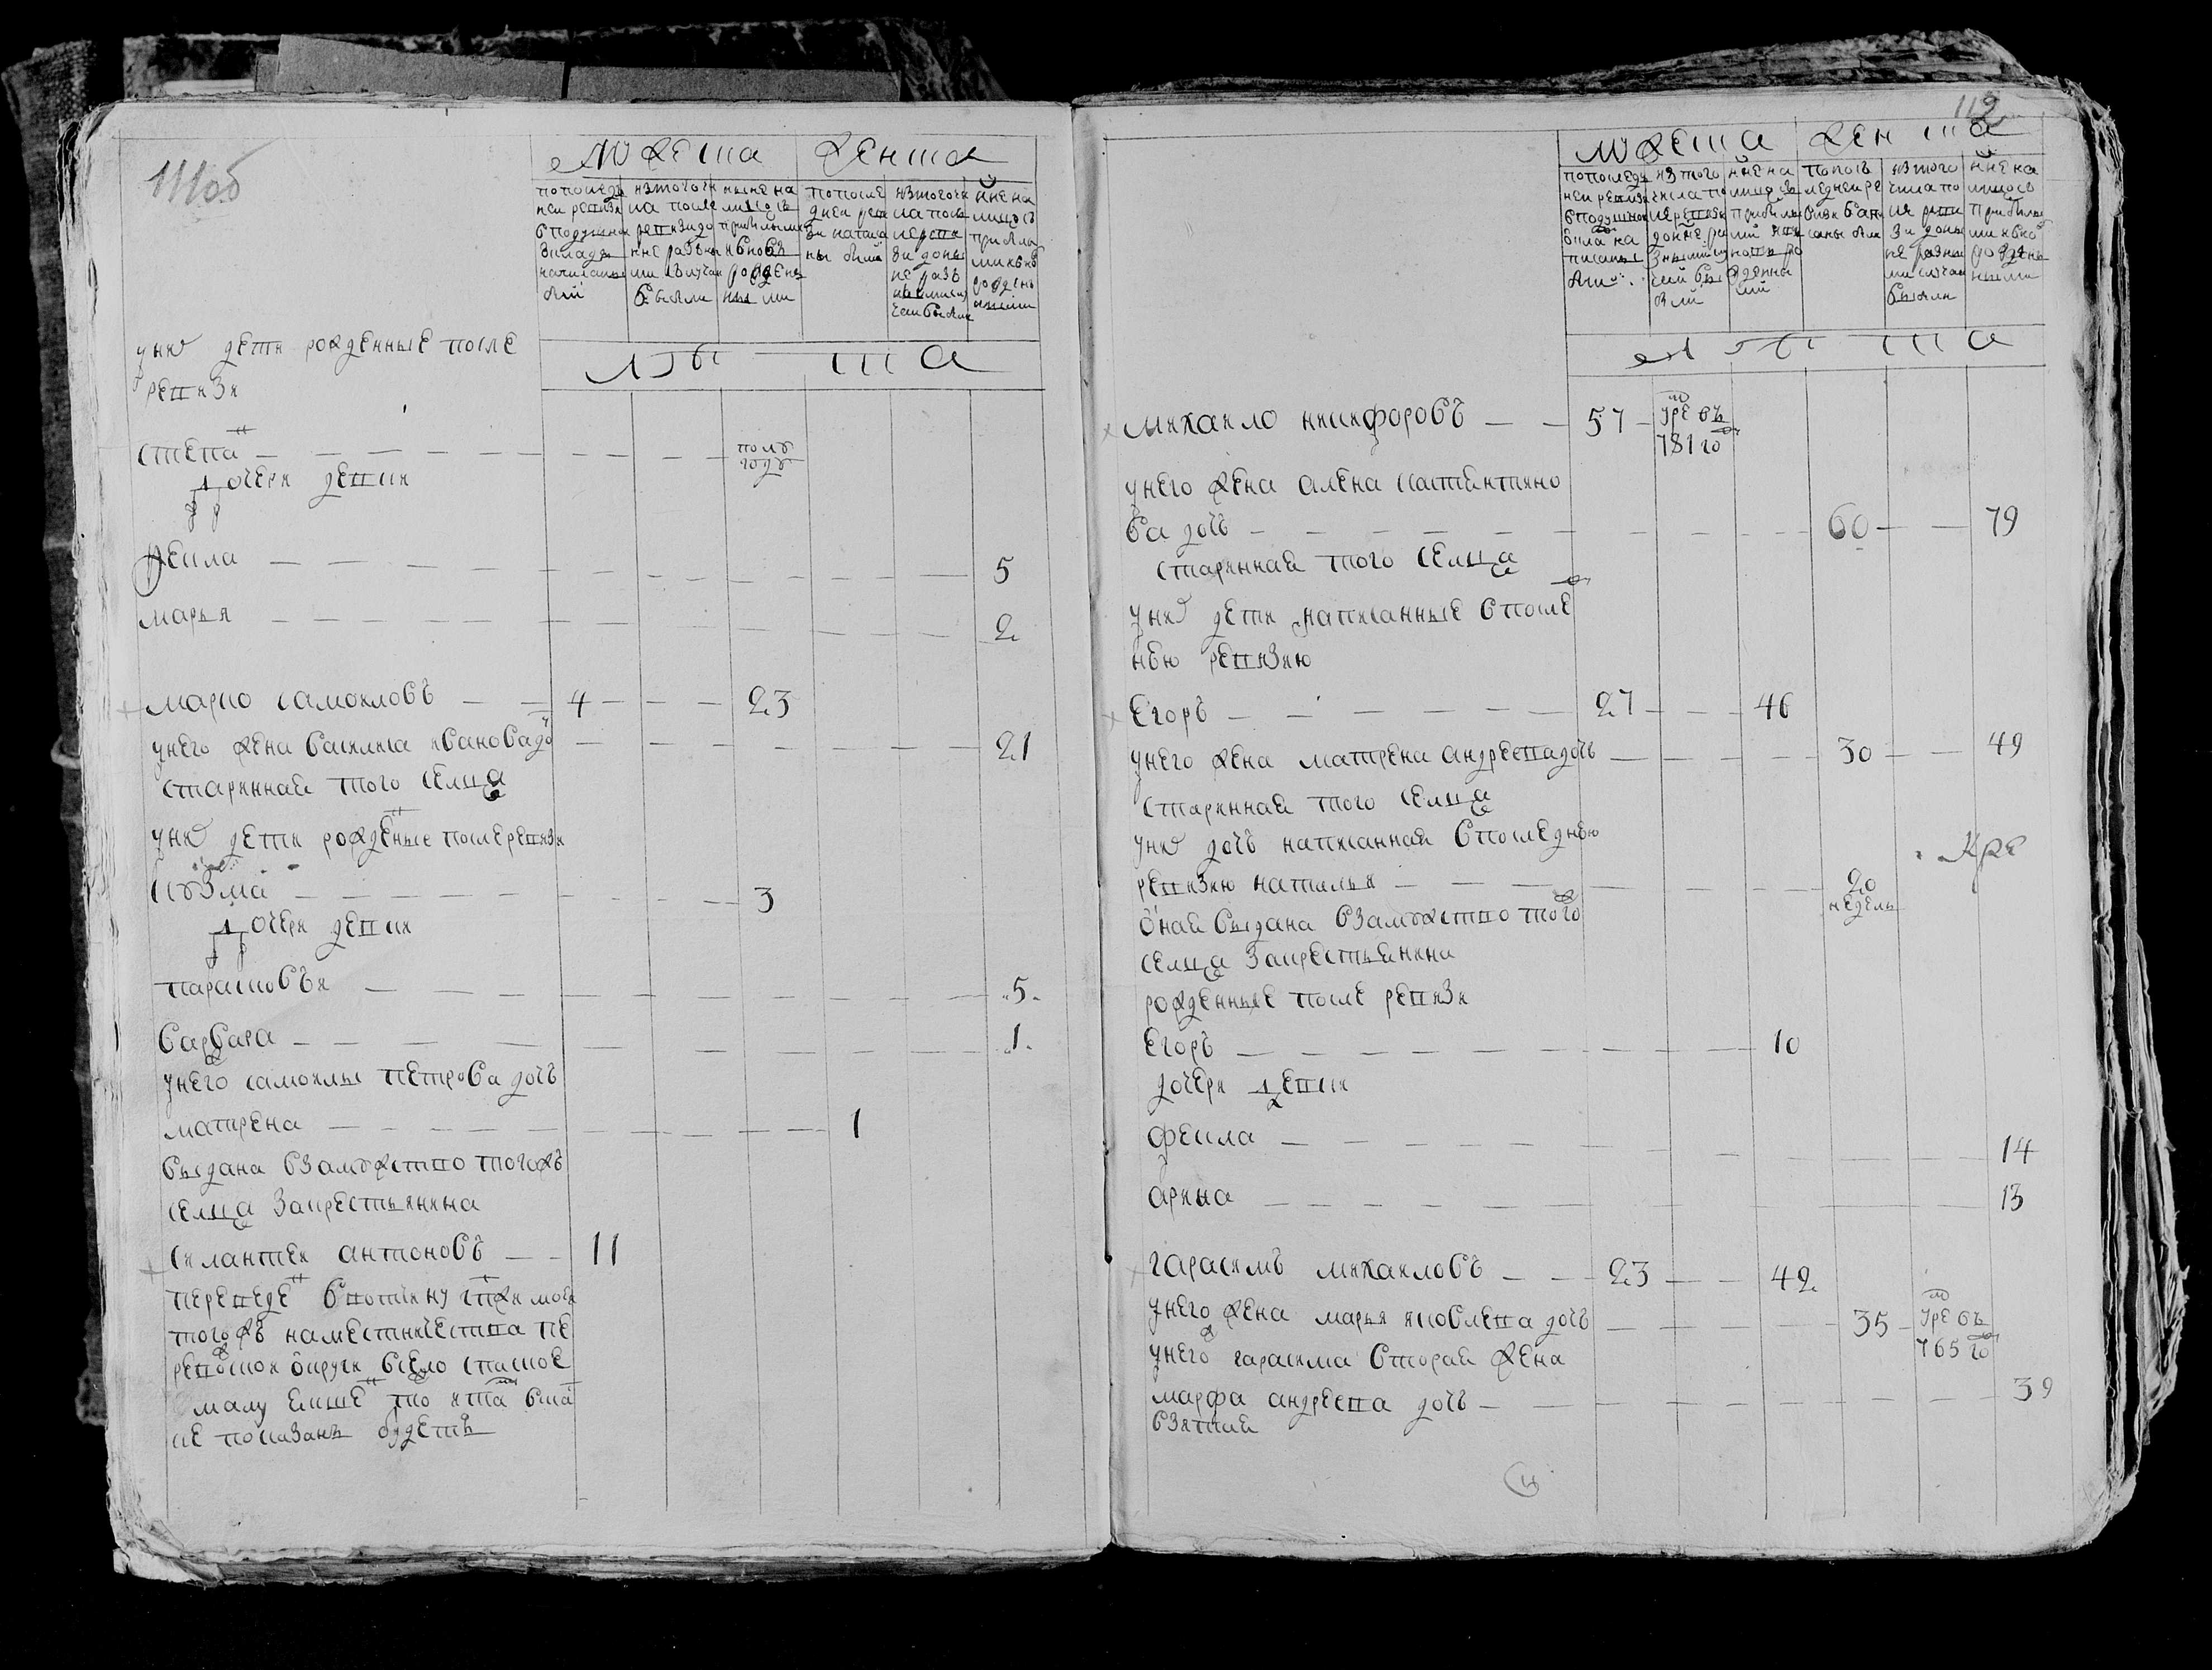 111об
мужеска женска
попослед
ней ревизи
вподушном
окладе
написаны
были
изтого чи
ла после
ревизи до
ныне разны
ми случаи
выбыли
ныне на
лицо съ
прибылыми
и вновь
рожден
ными
попосле
дней реви
зи написа
ны были
изтого чи
ла после
ревизи
до ны
не разъ
ными слу
чаи выбыли
ныне на
лицо съ
прибылы
ми и вно
рожден
ными
лѣта
уних дети рожденные после
ревизи
степан
полъ
году
дочери девки
фекла 5
марья 2
марко самойловъ 4 23
унего жена василиса иванова до 21
стариннай того селца
уних дети рожденые после ревизи
кузма 3
дочери девки
парасковья 5
варвара 1
унего самойлы петрова дочь
матрена 1
выдана взамужство тогожъ
селца закрестьянина
силантей антоновъ 11
переведен
тогожъ наместничества пе
округи всело спаское
не показанъ будетъ
112
мужеска женска
попослед
ней ревизи
вподушном
окладе на
писаны
были
изтого
числа по
сле ревизи
доныне ра
зными слу
чаи вы
были
ныне на
лицо съ
прибылы
ми и вн
новь ро
жденны
ми
попос
ледней ре
визи нап
саны были
изтого
числа по
сле реви
зи доны
не разны
ми случаи
выбыли
ныне на
лицо съ
прибылы
ми и вно
рожден
ными
лѣта
михайло никифоровъ 57 умре въ
781 го
унего жена алена констентино
ва дочь 60 79
стариннай того селца
уних дети написанные впосле
нею ревизию
егоръ 27 46
унего жена матрена андреева дочь 30 49
стариннай того селца
уних дочь написанная впоследнею
ревизию наталья 20
недель
оная выдана взамужство того
селца закрестьянина
рожденные после ревизи
егоръ 10
дочери девки
фекла 14
арина 13
гарасимъ михайловъ 23 42
унего жена марья яковлева дочь 35 умре въ
765 го
унего гарасима вторая жена
марфа андреева дочь 39
взятай